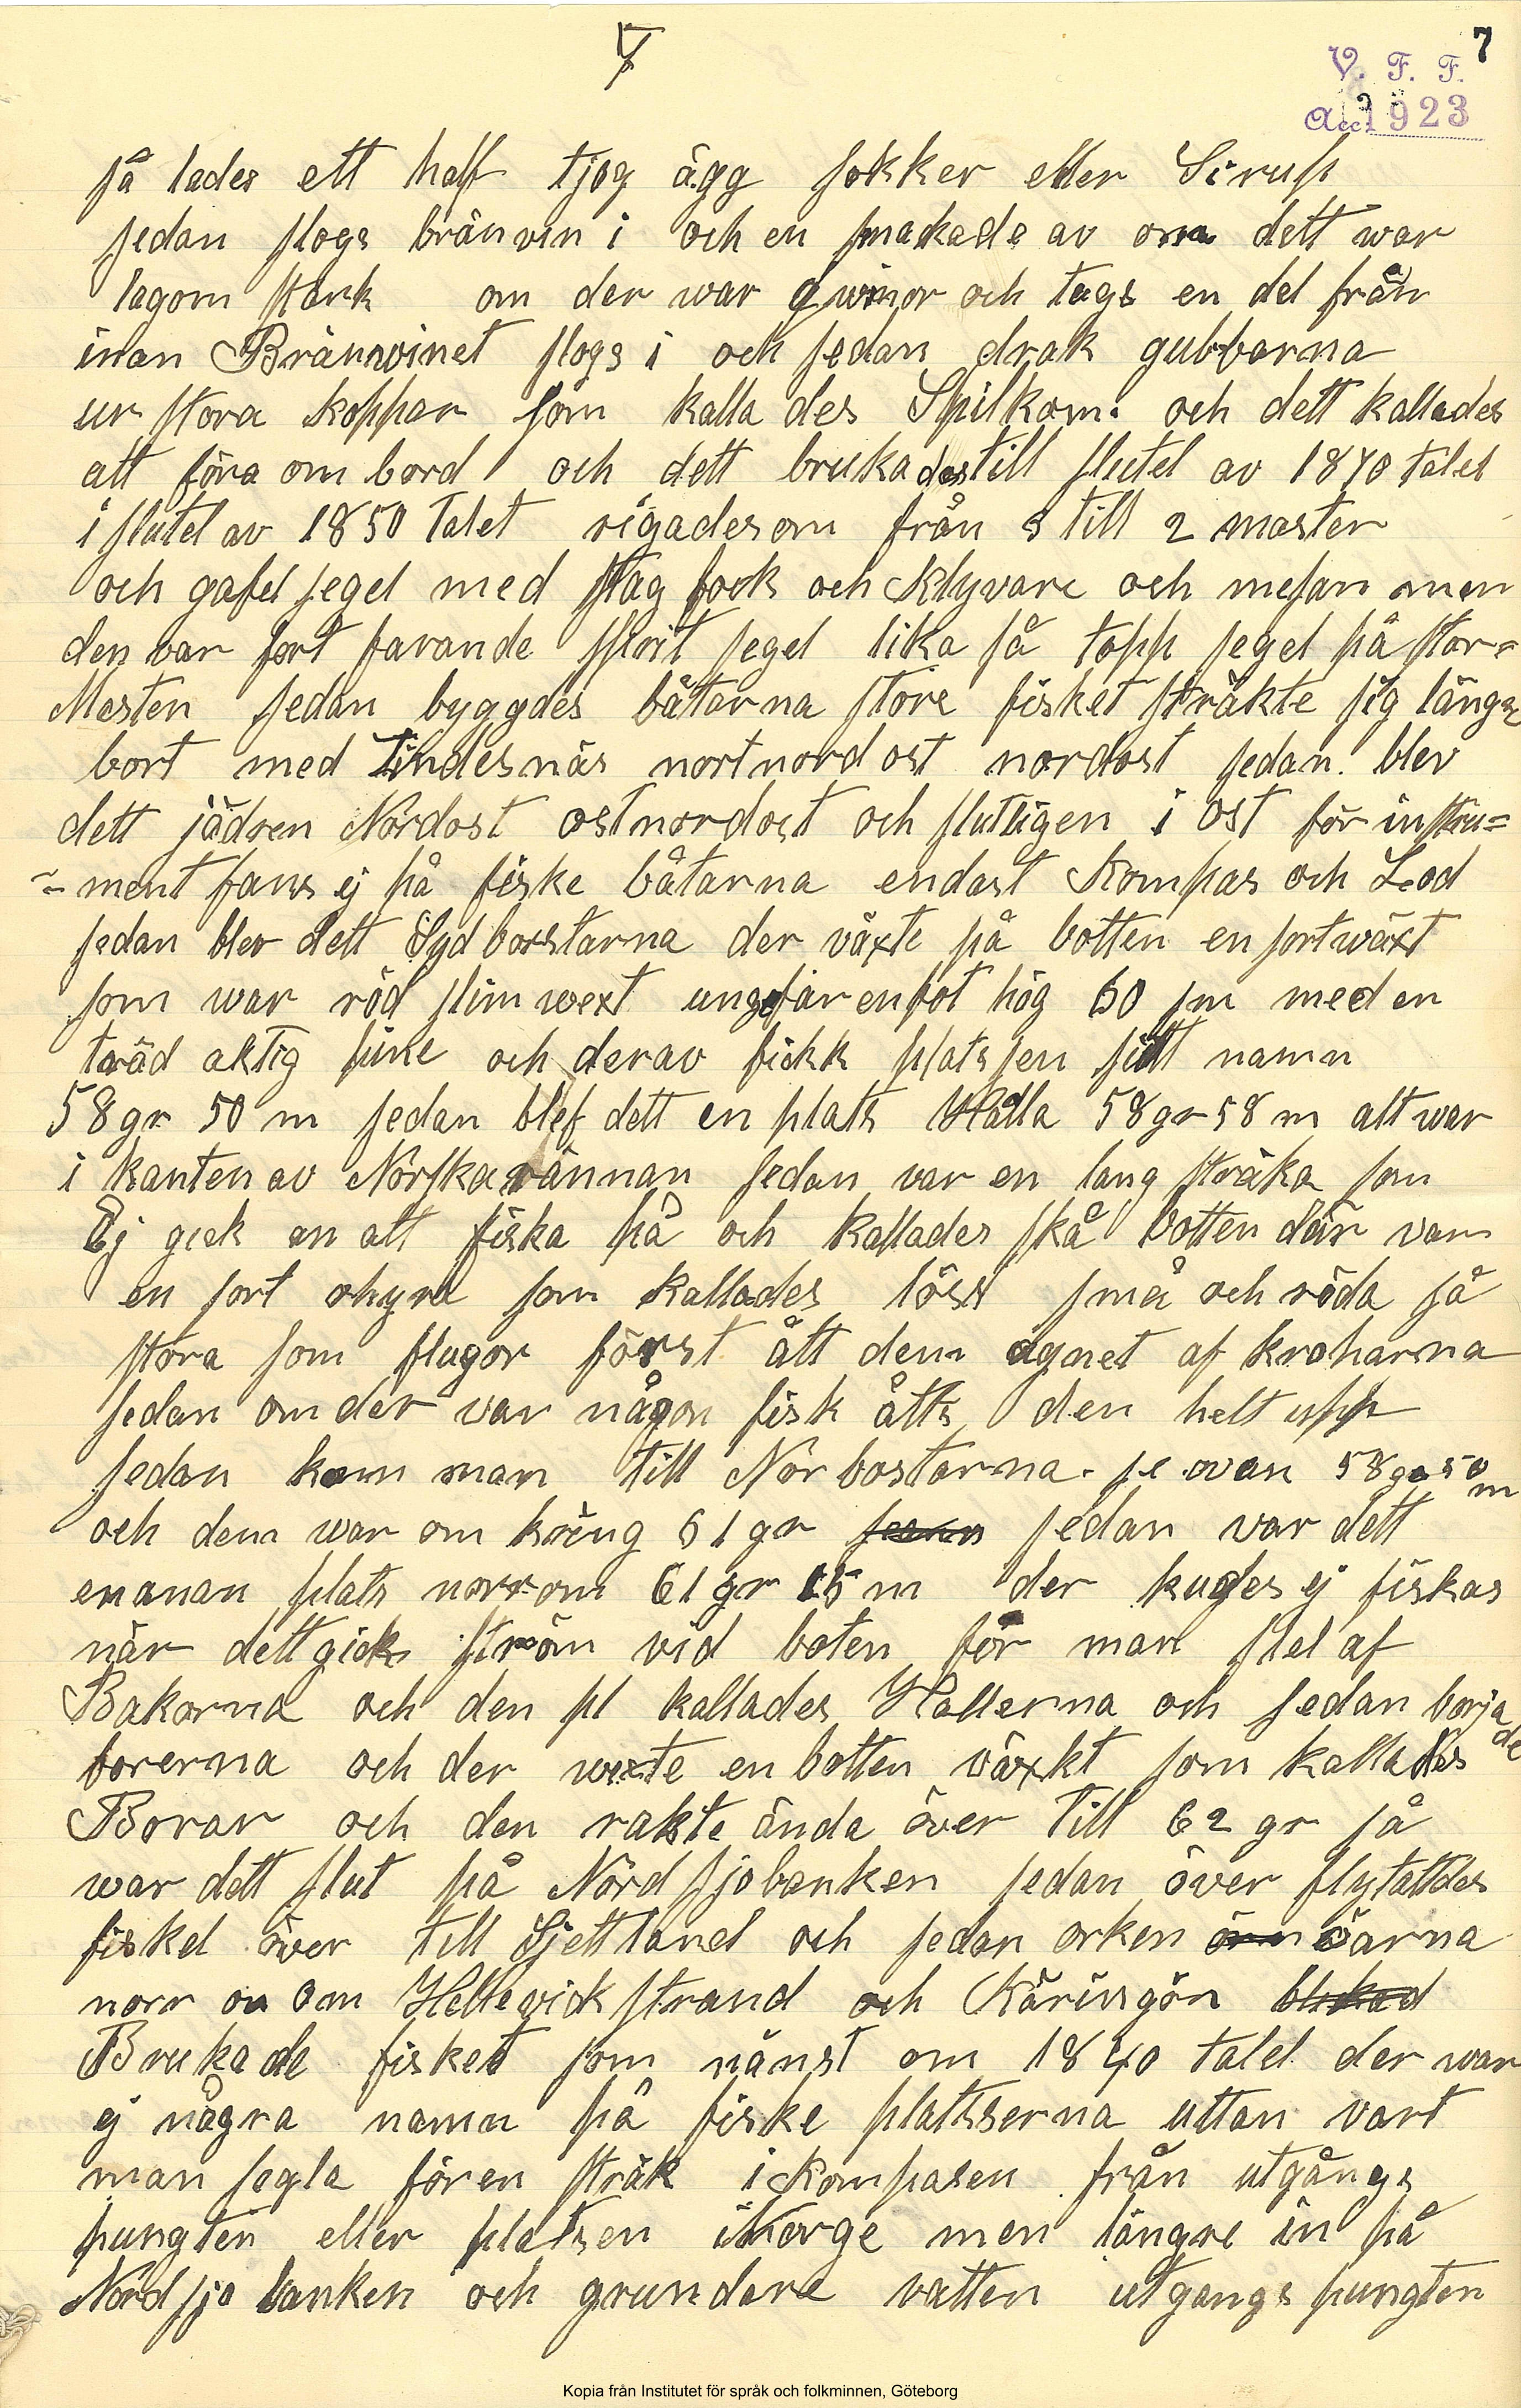 7
7
V. F. F.
Acc 1923
så lades ett half tjog ägg sokker eller Sirup
sedan slogs bränvin i och en smackade av om dett war
lagom stark om der war qwinor och togs en del från
inan Brännvinet slogs i och sedan drak gubbarna
ur stora koppar som kallades Spilkom. och dett kallades
att föra om bord och dett brukades till slutet av 1870 talet
i slutet av 1850 talet rigades om från 3 till 2 master
och gafel segel med stag fock och Klyvare och mesan men
den var fort farande sprit segel lika så topp segel på stor=
Masten sedan byggdes båtarna störe fisket sträkte sig längre
bort med Lindesnäs nortnord ost nordost sedan blev
dett jädren Nordost ostnordost och slutligen i ost för instru=
=ment fans ej på fiske båtarna endast Kompas och Lod
sedan blev dett Sydborstarna der växte på botten en sort wäxt
som war röd slim wext ungefär en fot hög 60 sm med en
träd aktig fine och derav fickk platssen sitt namn
58 gr 50 m sedan blef dett en plats Halla 58 gr 58 m alt war
i kanten av Norska rännan sedan var en lang sträka som
Ej gick an att fiska på och kallades skå botten där var
en sort ohyra som kallades löss små och röda så
stora som flugor först ått dem agnet af krokarna
sedan om der var någon fisk åtts den helt upp
sedan kom man till Nörbostarna. se ovan 58 gr 50 m
och dem war om kring 61 gr sedan var dett
en anan plats norr om 61 gr 15 m der kugdes ej fiskas
när dett gick ström vid boten för man slet af
Bakorna och den pl kallades Hallerna och sedan började
borerna och der wexte en botten växkt som kallades
Borar och den rakte ända över till 62 gr så
war dett slut på Nordsjobanken sedan över flytattdes
fisket över till Sjettland och sedan orken öarna
norr on om Hellevickstrand och Käringön
Brukade fisket som nänst om 1840 talet der war
ej några namn på fiske platsserna uttan vart
man segla för en sträk i kompasen från utgångs
pungten eller platsen i Norge men längre in på
Nordsjo banken och grundare vatten utgangs pungten
Kopia från Institutet för språk och folkminnen, Göteborg